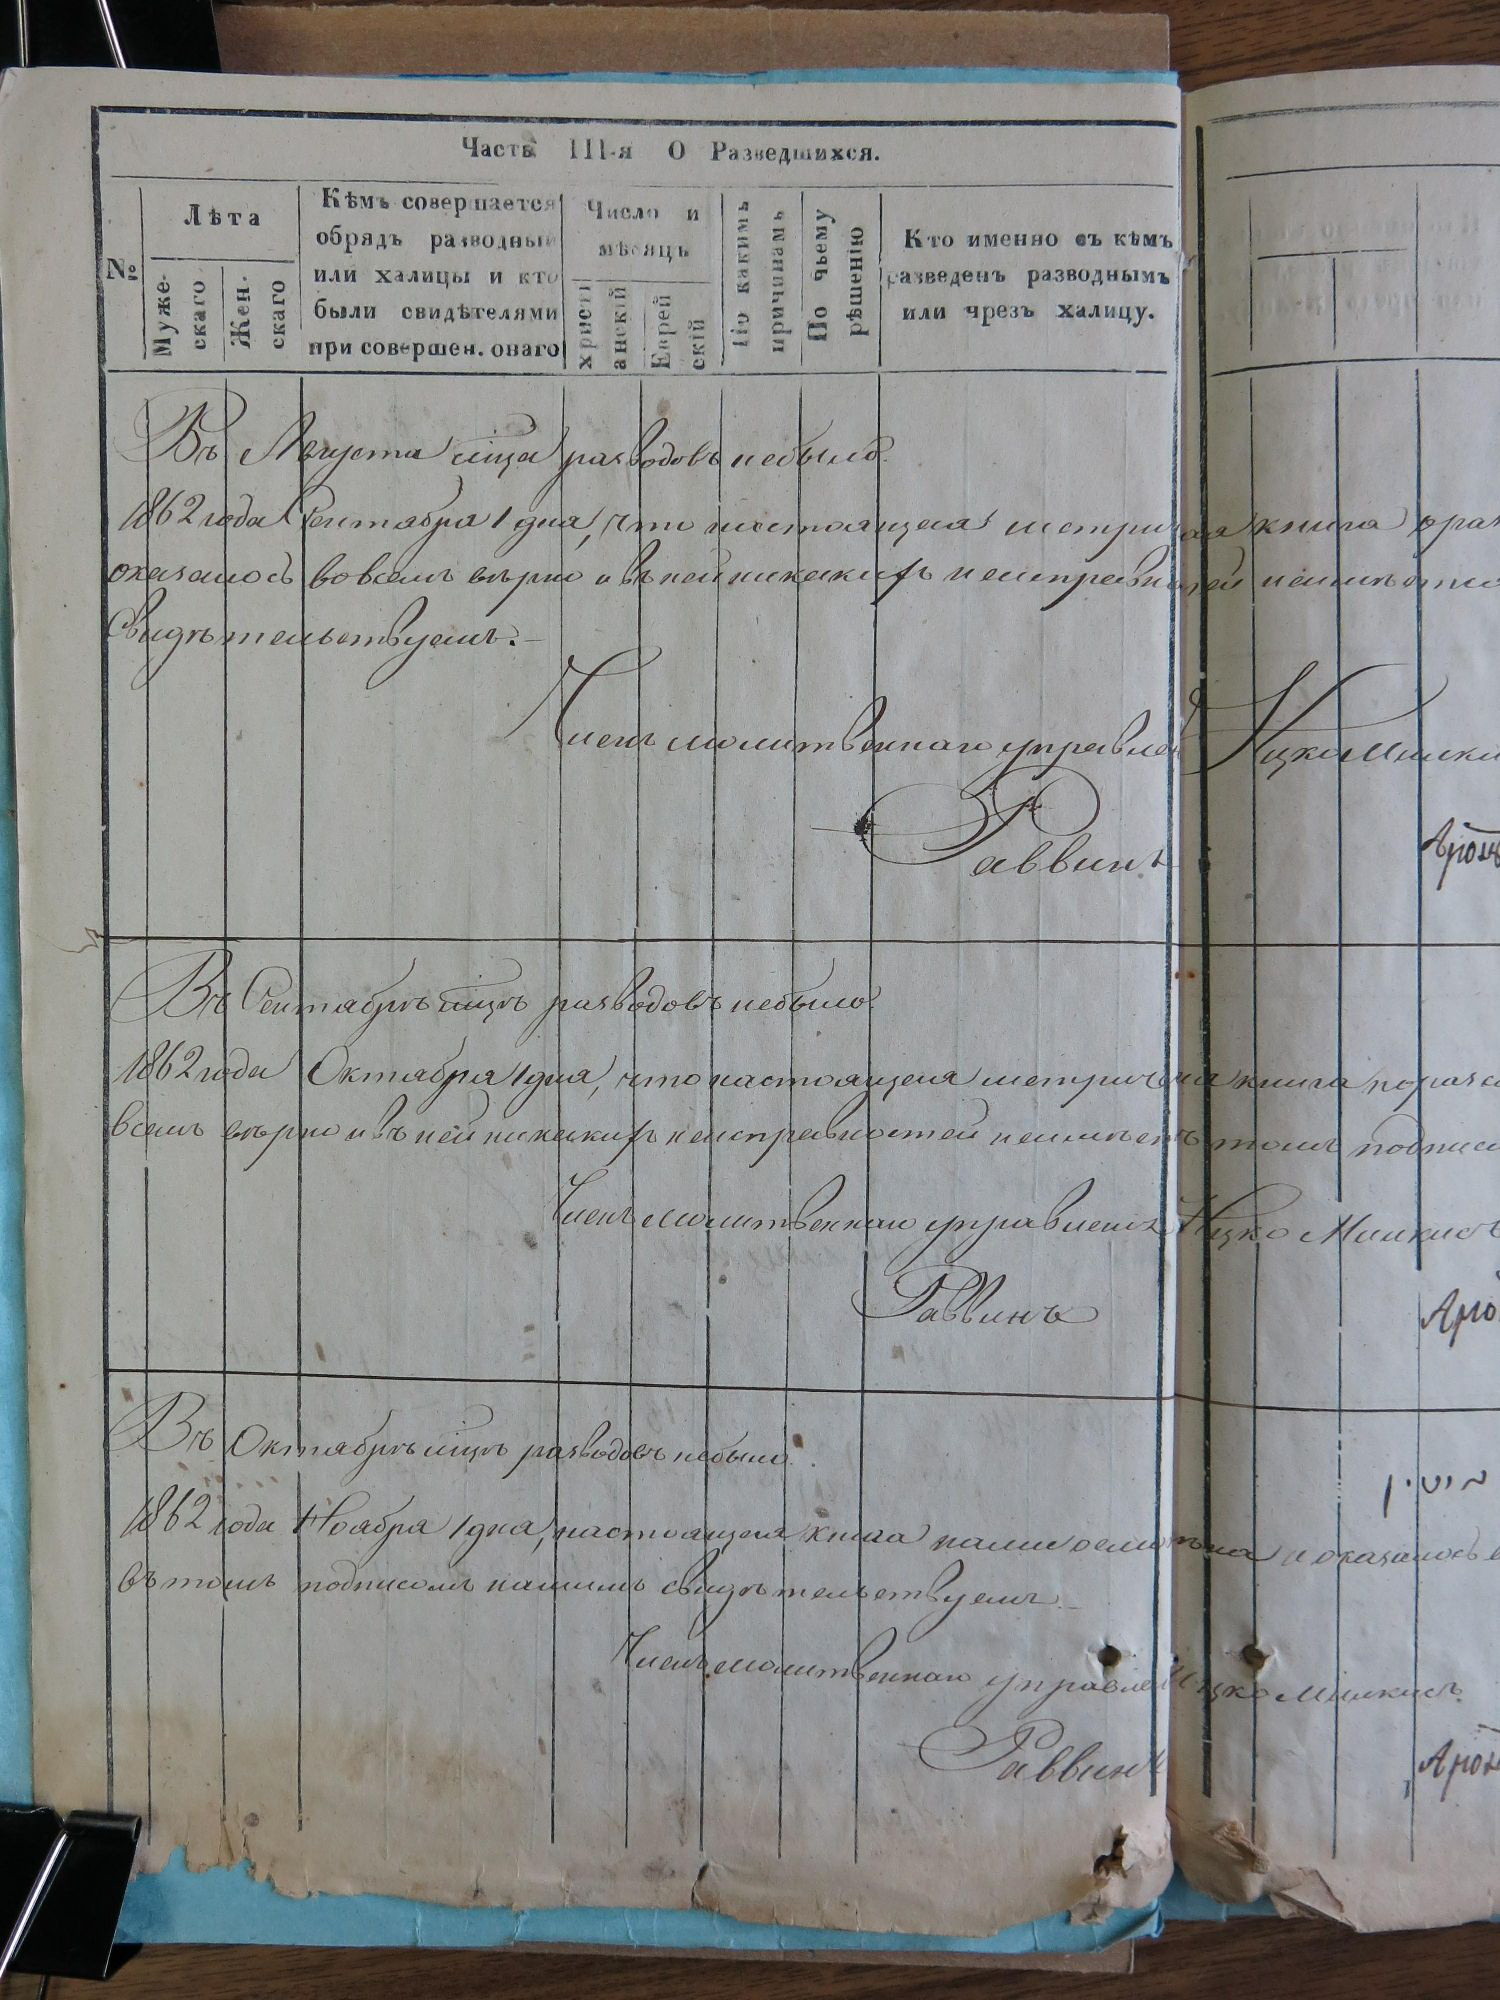 Часть III-я О Разведшихся.
№
Лѣта
Муже-
скаго
Жен.
скаго
Кѣмъ совершается
обрядъ разводный
или халицы и кто
были свидѣтелями
при совершен. онаго
Число и
мѣсяцъ
христі
анскій
Еврей
скій
По какимъ
причинамъ
По чьему
рѣшенію
Кто именно съ кѣмъ
разведенъ разводнымъ
или чрезъ халицу.
Въ Августа мца разводовъ небыло.
1862 года Сентября 1 дня, что настоящая метричная книга
оказалось вовсемъ вѣрно и въ ней никакихъ неисправностей неимѣется
Свидѣтельствуемъ.—
Членъ молитвеннаго управлен Ицко
Раввинъ
Въ Сентябрѣ мцѣ разводовъ небыло.
1862 года Октября 1 дня, что настоящая метричная книга
всемъ вѣрно и въ ней никакихъ неисправностей неимѣетъ томъ подписом
Членъ молитвеннаго управленія Ицко
Раввинъ
Въ Октябрѣ мцѣ разводовъ небыло.
1862 года Ноября 1 дня, настоящая книга нами осмотрена и оказалось
въ томъ подписомъ нашимъ свидѣтельствуемъ.—
Членъ молитвеннаго управлен Ицко
Раввинъ